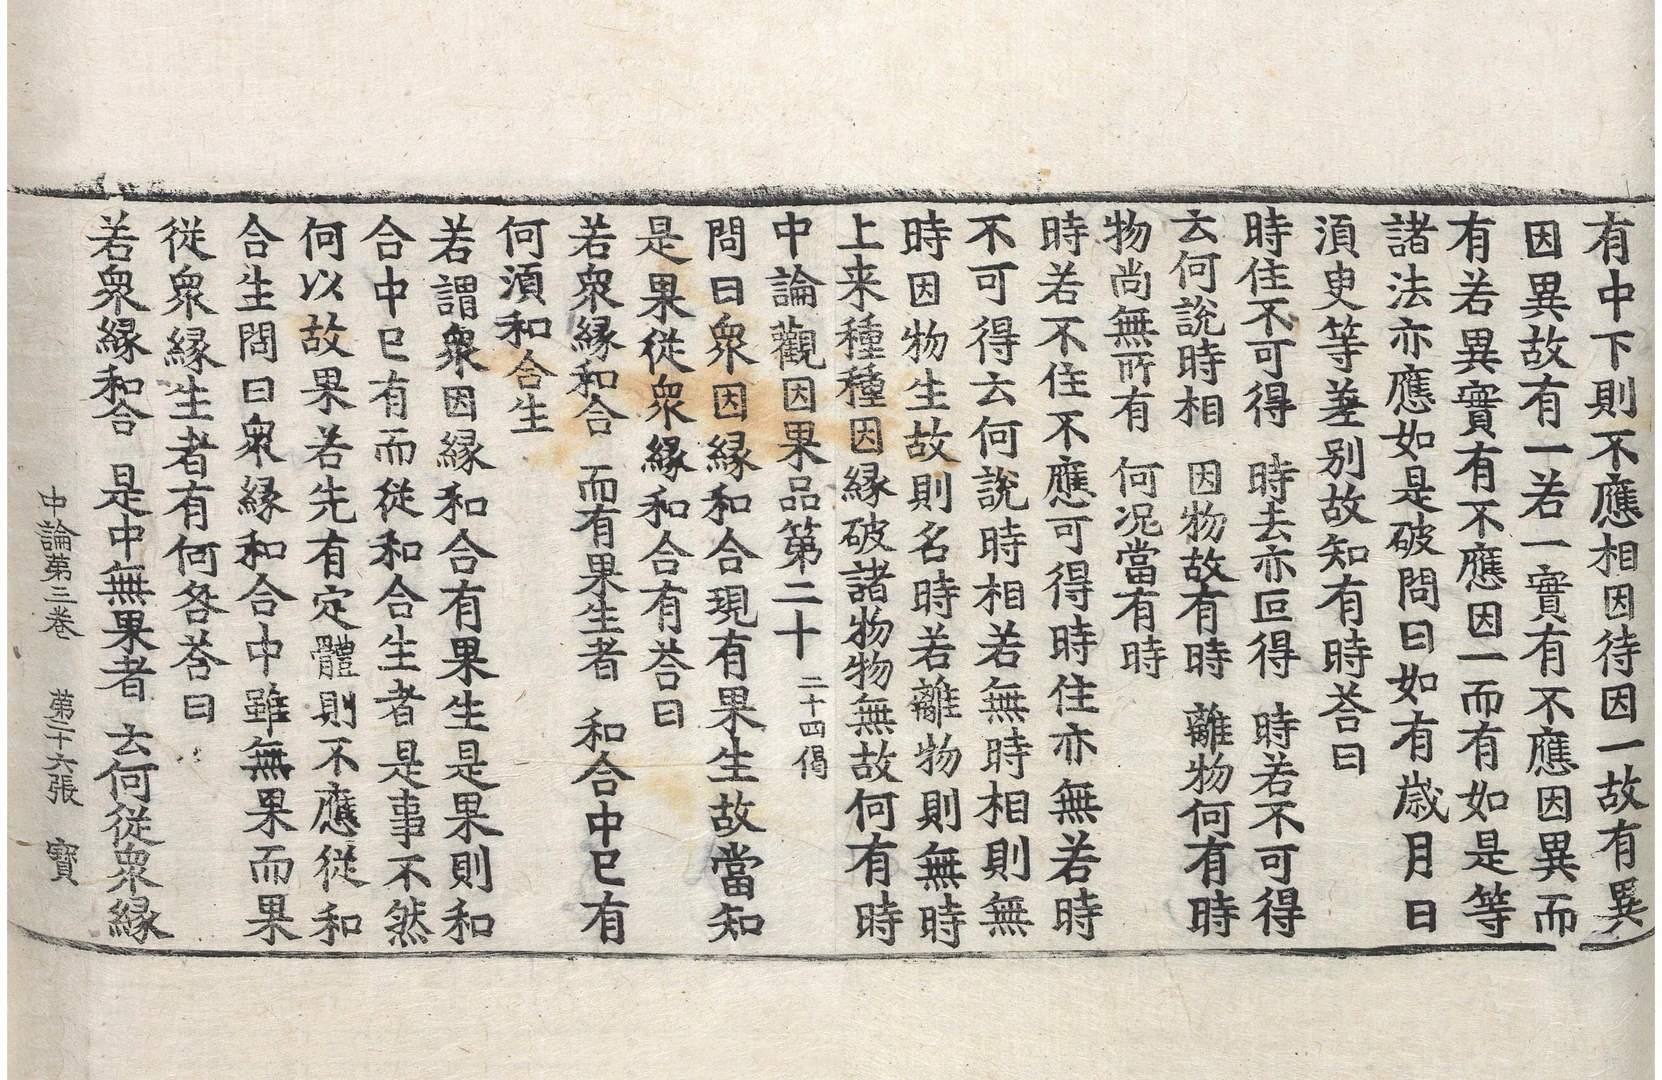 有中下則不應相因待因一故有異
因異故有一若一實有不應因異而
有若異實有不應因一而有如是等
諸法亦應如是破問曰如有歲月日
湏臾等差别故知有時荅曰
時住不可得 時去亦叵得 時若不可得
云何說時相 因物故有時 離物何有時
物尚無所有 何况當有時
時若不住不應可得時住亦無若時
不可得云何說時相若無時相則無
時因物生故則名時若離物則無時
上来種種因縁破諸物物無故何有時
中論觀因果品第二十 二十四偈
問曰衆因縁和合現有果生故當知
是果從衆縁和合有荅曰
若衆縁和合 而有果生者 和合中已有
何湏和合生
若謂衆因縁和合有果生是果則和
合中已有而從和合生者是事不然
何以故果若先有定體則不應從和
合生問曰衆縁和合中雖無果而果
從衆縁生者有何咎荅曰
若衆縁和合 是中無果者 云何從衆縁
中論第三卷 第二十六張 寶